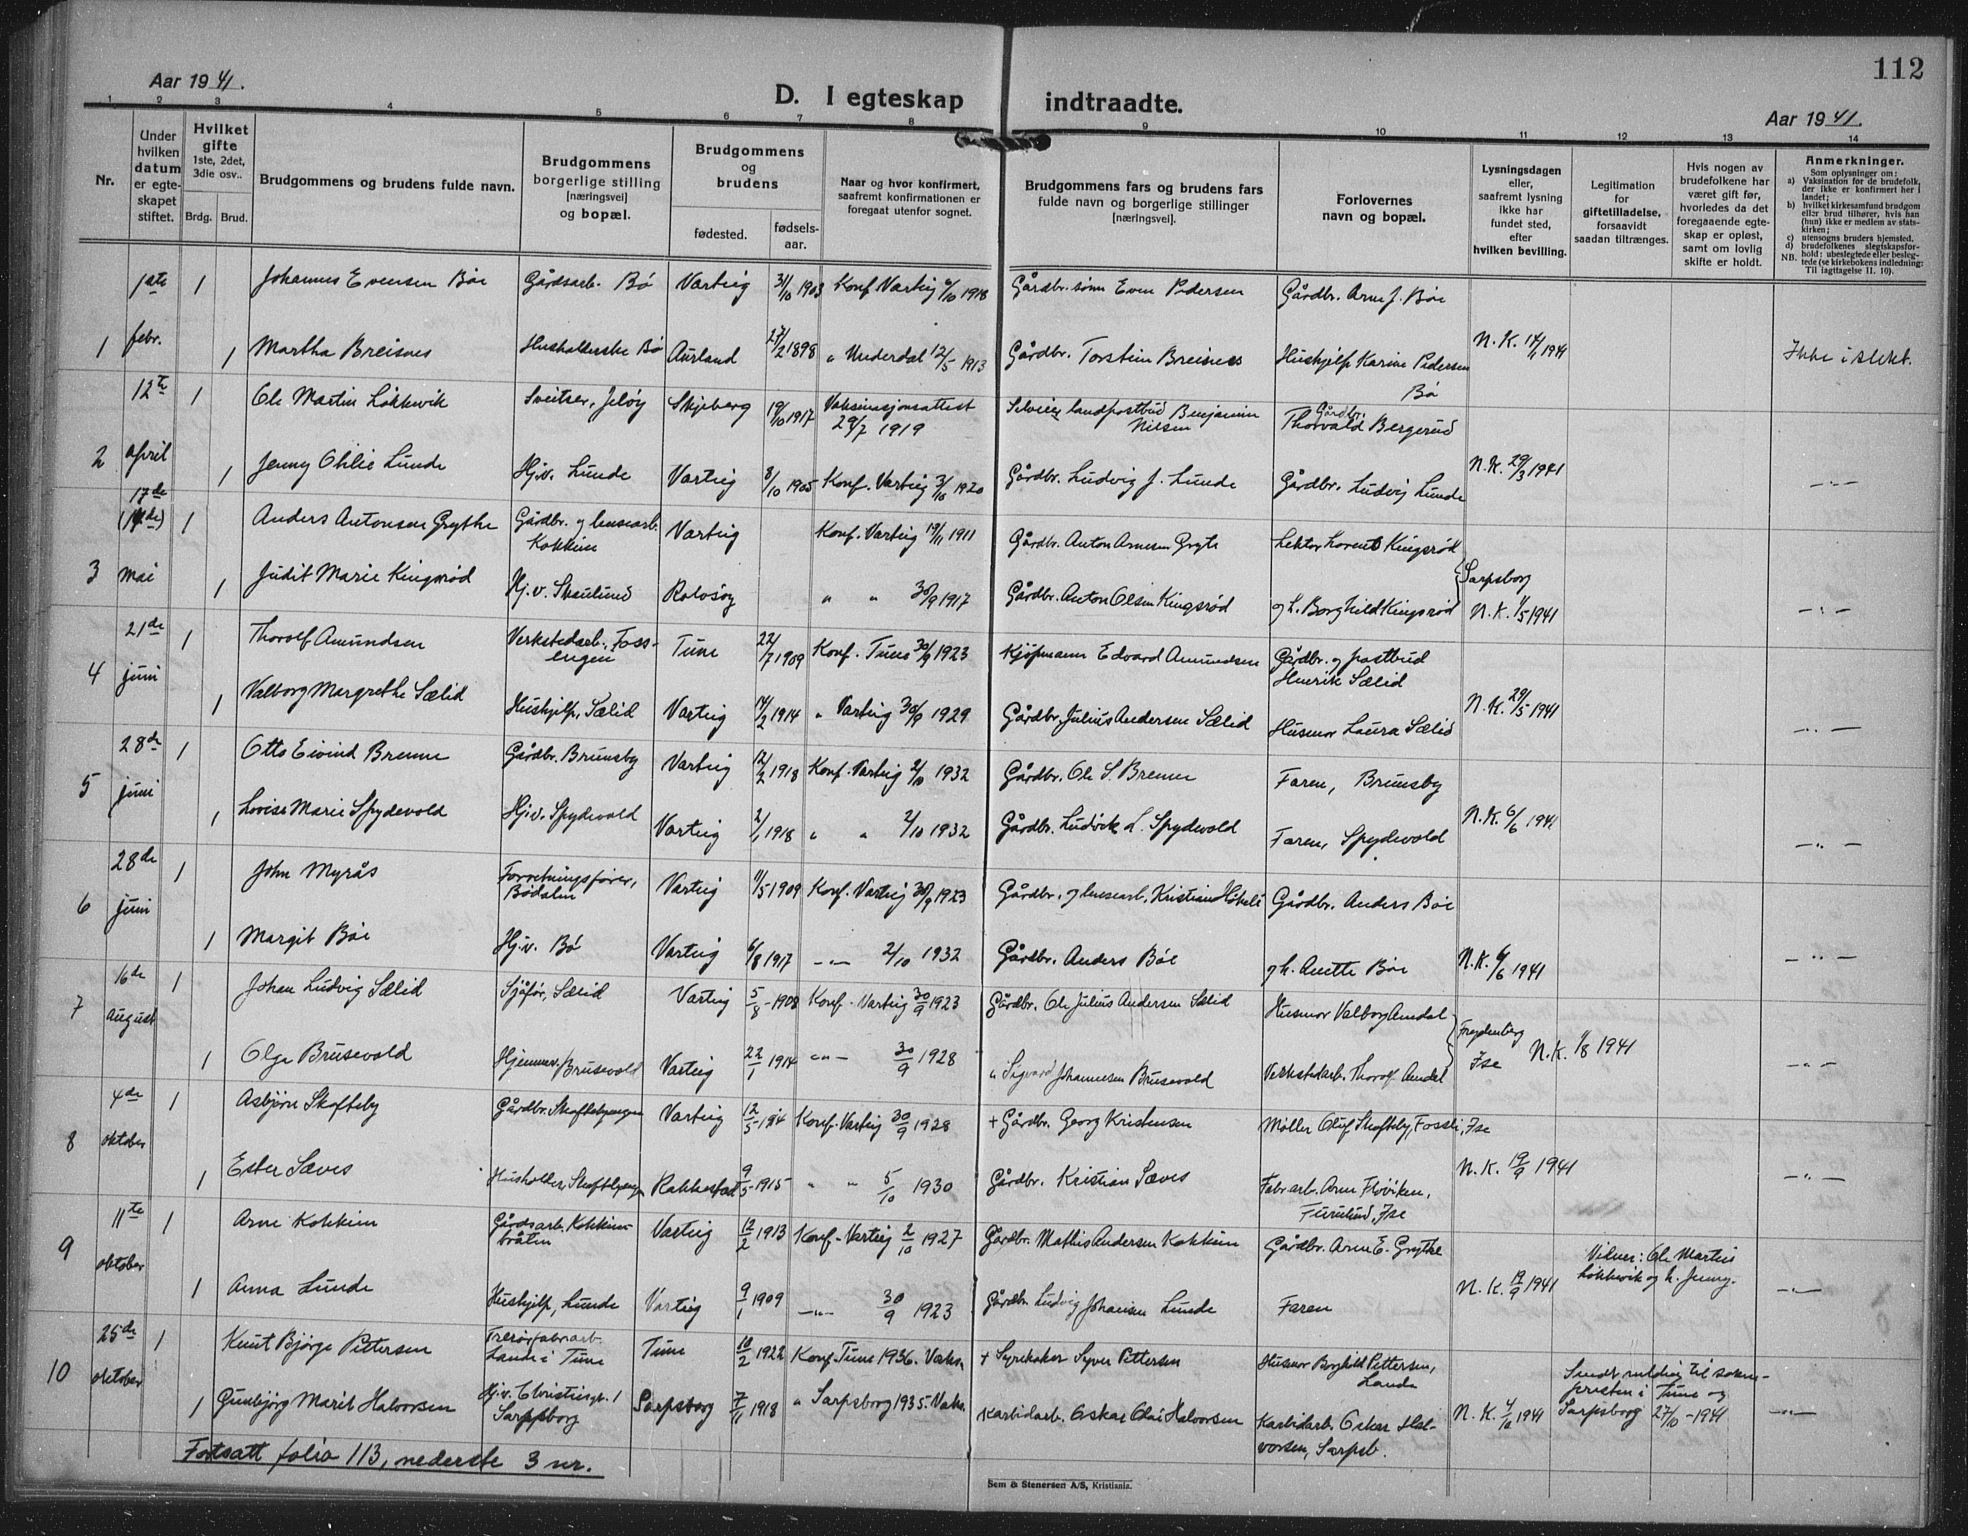 112
Aar 1941.
D. I egteskap indtraadte.
Aar 1941.
1 2 3 4 5 6 7 8 9 10 11 12 13 14
Nr.
Under hvilken datum er egteskapet stiftet.
Hvilket gifte
1ste, 2det, 3die osv..
Brdg. Brud.
Brudgommens og brudens fulde navn.
Brudgommens borgerlige stilling [næringsvei] og bopæl.
Brudgommens og brudens
fødested. fødselsaar.
Naar og hvor konfirmert, saafremt konfirmationen er foregaat utenfor sognet.
Brudgommens fars og brudens fars fulde navn og borgerlige stillinger [næringsvei].
Forlovernes navn og bopæl.
Lysningsdagen eller, saafremt lysning ikke har fundet sted, efter hvilken bevilling.
Legitimation for giftetilladelse, forsaavidt saadan tiltrænges.
Hvis nogen av brudefolkene har været gift før, hvorledes da det foregaaende egteskap er opløst, samt om lovlig skifte er holdt.
Anmerkninger.
Som oplysninger om:
a) Vaksination for de brudefolk, der ikke er konfirmert her i landet;
b) hvilket kirkesamfund brudgom eller brud tilhører, hvis han (hun) ikke er medlem av statskirken;
c) utensogns bruders hjemsted.
d) brudefolkenes slegtskapsforhold: ubeslegtede eller beslegtede (se kirkebokens indledning: Til iagttagelse II. 10).
NB.
1ste 1 Johannes Evensen Bøe Gårdsarb. Bø Varteig 31/10 1903 Konf. Varteig 6/10 1918 Gårdbr. sønn Even Pedersen Gårdbr. Arne J. Bøe
1 febr. 1 Martha Breisnes Husholderske Bø Aurland 27/2 1898 " Underdal 12/5 1913 Gårdbr. Torstein Breisnes Hushjelp Karine Pedersen Bø N.K. 14/1 1941 Ikke i slekt.
12te 1 Ole Martin Løkkevik Sveitser, Jeløy Skjeberg 19/10 1917 Vaksinasjonsattest 29/7 1919 Selveier landpostbud Benjamin Nilsen Gårdbr. Thorvald Bergerud
2 april 1 Jenny Otilie Lunde Hj.v. Lunde Varteig 8/10 1905 Konf. Varteig 3/10 1920 Gårdbr. Ludvig J. Lunde Gårdbr. Ludvig Lunde N.K. 29/3 1941 — " —
17de (14de) 1 Anders Antonsen Grythe Gårdbr. og lensearb. Kokkim Varteig Konf. Varteig 19/11 1911 Gårdbr. Anton Arnesen Gryte Lektor Lorentz Kingsrød
3 mai 1 Judit Marie Kingsrød Hj.v. Skaulund Rolvsøy " " 30/9 1917 Gårdbr. Anton Olsen Kingsrød og h. Borghild Kingsrød Sarpsborg N.K. 1/5 1941 — " —
21de 1 Thorolf Amundsen Verkstedarb., Fossengen Tune 22/7 1909 Konf. Tune 30/9 1923 Kjøpmann Edvard Amundsen Gårdbr. og postbud Henrik Sælid
4 juni 1 Valborg Margrethe Sælid Hushjelp, Sælid Varteig 14/2 1914 " Varteig 30/9 1929 Gårdbr. Julius Andersen Sælid Husmor Laura Sælid N.K. 29/5 1941 — " —
28de 1 Otto Eivind Brenne Gårdbr. Brunsby Varteig 12/2 1918 Konf. Varteig 2/10 1932 Gårdbr. Ole S. Brenne Faren, Brunsby
5 juni 1 Lovise Marie Spydevold Hj.v. Spydevold Varteig 2/1 1918 " " 2/10 1932 Gårdbr. Ludvik L. Spydevold Faren, Spydevold N.K. 6/6 1941 — " —
28de 1 John Myrås Forretningsfører, Bødalen Varteig 1/5 1909 Konf. Varteig 30/9 1923 Gårdbr. og lensearb. Kristian Gårdbr. Anders Bøe
6 juni 1 Margit Bøe Hj.v. Bø Varteig 6/8 1917 — " — 2/10 1932 Gårdbr. Anders Bøe og h. Anette Bøe N.K. 6/6 1941 — " —
16de 1 Johan Ludvig Sælid Sjåfør, Sælid Varteig 5/8 - 1908 Konf. Varteig 30/9 1923 Gårdbr. Ole Julius Andersen Sælid Husmor Valborg Amdal
7 august 1 Olga Brusevold Hjemmev. Brusevold Varteig 22/1 1914 — " — 30/9 1928 " Sigvard Johannesen Brusevold Verkstedarb. Thorolf Amdal Frydenberg Ise N.K. 1/8 1941 — " —
4de 1 Asbjørn Skofteby Gårdbr. Skoftebyengen Varteig 12/5 - 1914 Konf. Varteig 30/9 1928 + Gårdbr. Georg Kristensen Møller Oluf Skofteby, Fossli, Ise
8 oktober 1 Ester Sæves Husholder. Skoftebyengen Rakkestad 9/5 - 1915 " " 5/10 1930 Gårdbr. Kristian Sæves Fabr.arb. Arne Fløviken, Furulund, Ise N.K. 19/9 1941 — " —
11te 1 Arne Kokkim Gårdsarb. Kokkimbråten Varteig 12/2 1913 Konf. Varteig 2/10 1927 Gårdbr. Mathis Andersen Kokkim Gårdbr. Arne E. Grytke
9 oktober 1 Anna Lunde Hushjelp, Lunde Varteig 9/1 1909 — " — 30/9 1923 Gårdbr. Ludvig Johansen Lunde Faren N.K. 19/9 1941 Vitner: Ole Martin Løkkevik og h. Jenny. — " —
25de 1 Knut Bjørge Pettersen Trerørfabr.arb. Lande i Tune Tune 10/2 1922 Konf. Tune 1936. Vaks. + Syver Pettersen Husmor Borghild Pettersen, Lande
10 oktober 1 Gunbjørg Marit Halvorsen Hj.v. 1 Sarpsborg Sarpsborg 7/11 1918 " Sarpsborg 1935. Vaks. Karbidarb. Oskar Olai Halvorsen Karbidarb. Oskar Halvorsen, Sarpsb. N.K. 4/10 1941 Sendt melding til soknepresten i Tune og Sarpsborg 27/10 - 1941 — " —
Fortsatt folio 113, nederste 3 nr.
Sem & Stenersen A/S, Kristiania.